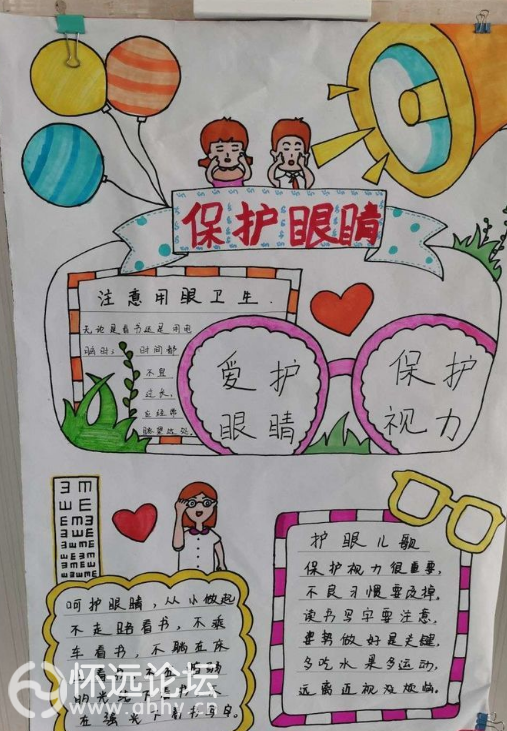 保护眼睛
注意用眼卫生.
无论是看书还是用电
脑时，时间都
不要
过长，
应经常
眺望远处.
爱护
眼睛
保护
视力
呵护眼睛，从小做起
不走路看书，不乘
车看书，不躺在床
在强光下看书写字。
护眼儿歌
保护视力很重要，
不良习惯要改掉。
读书写字要注意，
姿势做好是关键，
多吃水果多运动，
远离近视没烦恼。
怀远论坛
www.ahhy.cn